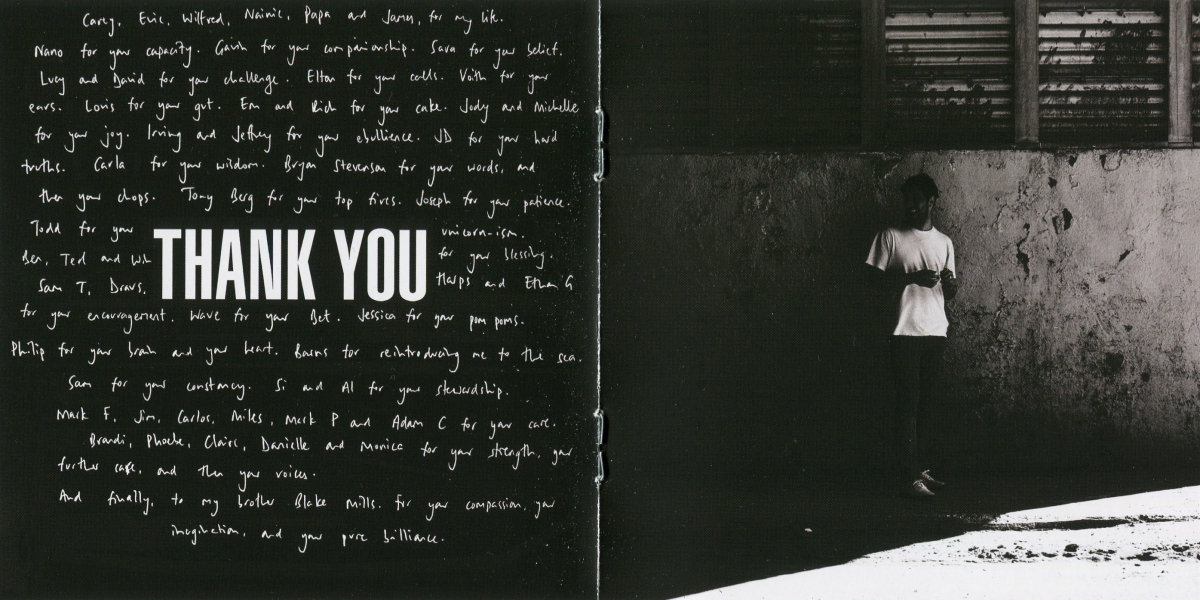 Carey, Eric, Wilfred, Nainie, Papa and James, for my life.
Nano for your capacity. Gavin for your companionship. Sara for your belief.
Lucy and David for your challenge. Elton for your calls. Voith for your
ears. Louis for your gut. Em and Rich for your cake. Jody and Michelle
for your joy. Irving and Jeffrey for your ebullience. JD for your hard
truths. Carla for your wisdom. Bryan Stevenson for your words, and
then your chops. Tony Berg for your top fives. Joseph for your patience.
Todd for your unicorn-ism.
Ben, Ted and for your blessing.
THANK YOU
Sam T, Dravs, Harps and Ethan G
for your encouragement. Wave for your Bet. Jessica for your pom poms.
Philip for your brain and your heart. Barns for reintroducing me to the sea.
Sam for your constancy. Si and Al for your stewardship.
Mark F, Jim, Carlos, Miles, Mark P and Adam C for your care.
Brandi, Phoebe, Claire, Danielle and Monica for your strength, your
further care, and then your voices.
And finally, to my brother Blake Mills. For your compassion, your
imagination, and your pure brilliance.